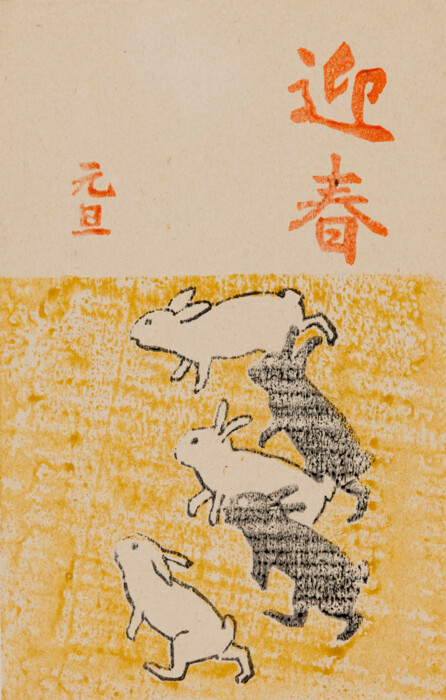 迎春
元旦